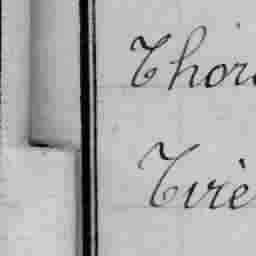 Thor
Tirè